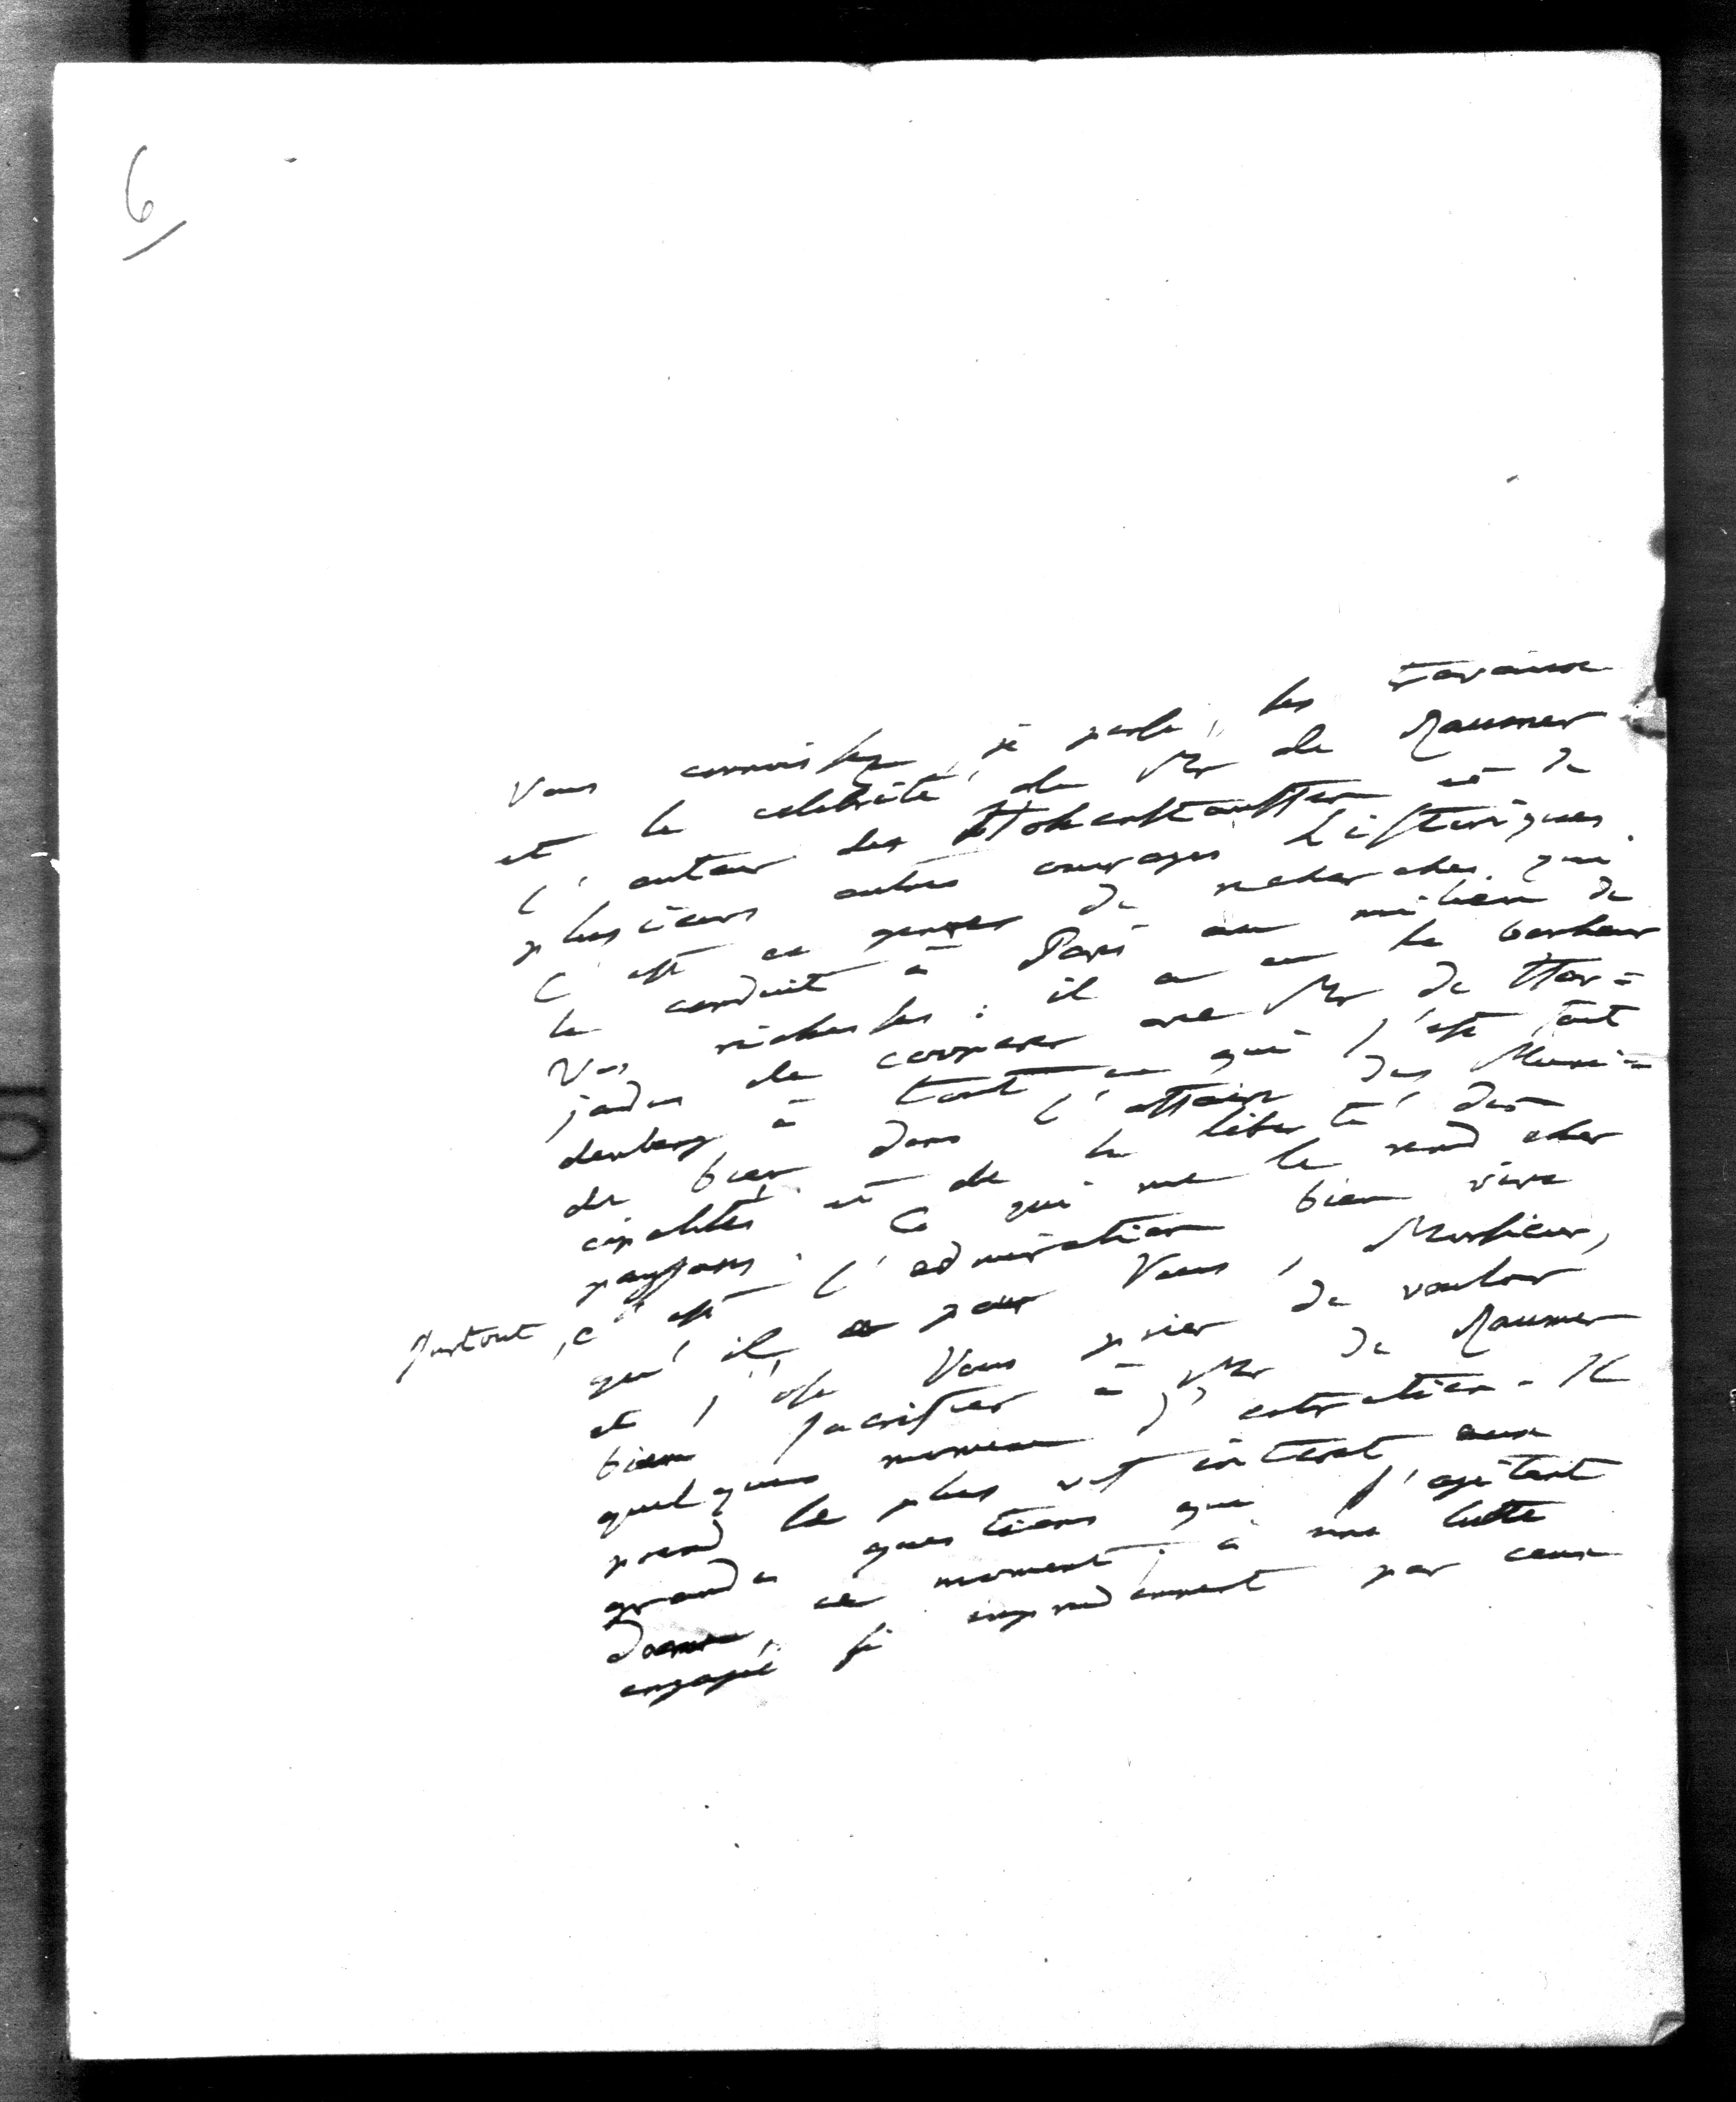 6
Vous connoissez, je parle, les travaux
et la celebrité de Mr de Raumer
l'auteur des Hohenstauffen et de
plusieurs autres ouvrages historiques.
C'est ce genre de recherches qui
le conduit à Paris au milieu de
Vos richesses: il a eu le bonheur
jadis de cooperer avec Mr de Har=
denberg à tout ce qui s'est fait
de bien dans l'affaire des Muni=
cipalités et de la liberté des
paysans. Ce qui me le rend cher
surtout, c'est l'admiration bien vive
qu'il a pour Vous, Monsieur,
et j'ose Vous prier de vouloir
bien sacrifier à Mr de Raumer
quelques momens d'entretien. Il
prend le plus vif interet aux
grandes questions qui s'agitent
dans ce moment, à une lutte
engagée si imprudemment par ceux